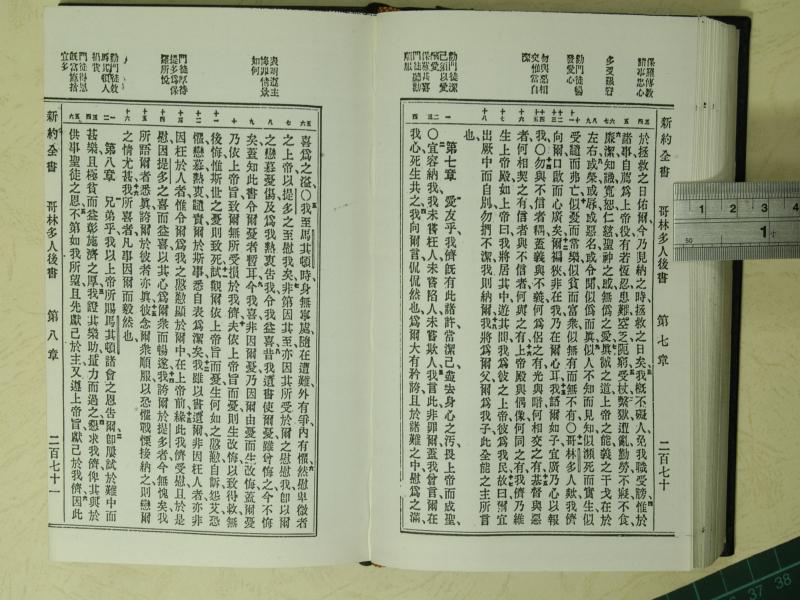 保羅傳教諸事忠心
多受艱窘
勸門徒暢發愛心
勿與惡相交惟當自潔
勸門徒潔己須以愛順服
新約全書 哥林多人後書 第七章 二百七十
於拯救之日佑爾今乃見納之時拯救之日矣我概不礙人免我職受謗惟於
諸事自薦爲上帝役有若恆忍患難空乏阨窮受杖繫獄遭亂勤勞不寢不食
廉潔知識寬恕仁慈聖神之感無僞之愛眞誠之道上帝之能義之干戈在於
左右或榮或辱或惡名或令聞似僞而眞似人不知而見知似瀕死而實生似
受譴而弗亡似憂而常樂似貧而富衆似無有而無不有○哥林多人歟我儕
向爾口啟而心廣矣爾褊狹非在我乃在爾心耳我語爾如子宜廣乃心以報
我○勿與不信者耦蓋義與不義何爲侶之有光與暗何相交之有基督與惡
者何相契之有信者與不信者何與之有上帝殿與偶像何同之有我儕乃維
生上帝殿如上帝曰我將居其中遊其間我爲彼之上帝彼爲我民故曰爾宜
出厥中而自別勿捫不潔我則納爾我將爲爾父爾爲我子此全能之主所言
也
第七章 愛友乎我儕旣有此諸許當潔己盡去身心之污畏上帝而成聖
○宜容納我我未嘗枉人未嘗陷人未嘗欺人我言此非罪爾蓋我曾言爾在
我心死生共之我向爾言侃侃然也爲爾大有矜誇且於諸難之中慰爲之滿
表明遵主悔罪情景如何
門徒厚待提多爲保羅所悅
勸門徒效馬其頓人捐貲
門徒得恩旣富應捨宜多
喜爲之溢○我至馬其頓時身無寧處隨在遭難外有爭內有懼然慰卑微者
之上帝以提多之至慰我矣非第因其至亦因其所受於爾之慰慰我卽以爾
之戀慕憂傷及爲我熱衷告我令我益喜昔我遺書使爾憂雖曾悔之今不悔
矣蓋知此書令爾憂者暫耳今我喜非因爾憂乃因爾由憂而生改悔蓋爾憂
乃依上帝旨致爾無所受損於我儕夫依上帝旨而憂則生改悔以致得救無
後悔惟斯世之憂則致死試觀爾依上帝旨而憂生何如之慇懃自訴怨艾恐
懼戀慕熱衷譴責爾於斯事悉自表爲潔矣我雖以書遺爾非因枉人者亦非
因枉於人者惟令爾爲我之慇懃顯於爾中在上帝前緣此我儕受慰且於是
慰因提多之喜而益喜以其心爲爾衆而暢遂我誇爾於提多者今無愧矣我
所語爾者悉眞誇爾於彼者亦眞彼念爾衆順服以恐懼戰慄接納之則戀爾
之情尤甚我所喜者凡事因爾而毅然也
第八章 兄弟乎我以上帝所賜馬其頓諸會之恩告爾卽屢試於難中而
甚樂且極貧而益彰施濟之厚我證其樂助量力而過之懇求我儕俾其與於
供事聖徒之恩不第如我所望且先獻己於主又遵上帝旨獻己於我儕因此
新約全書 哥林多人後書 第八章 二百七十一